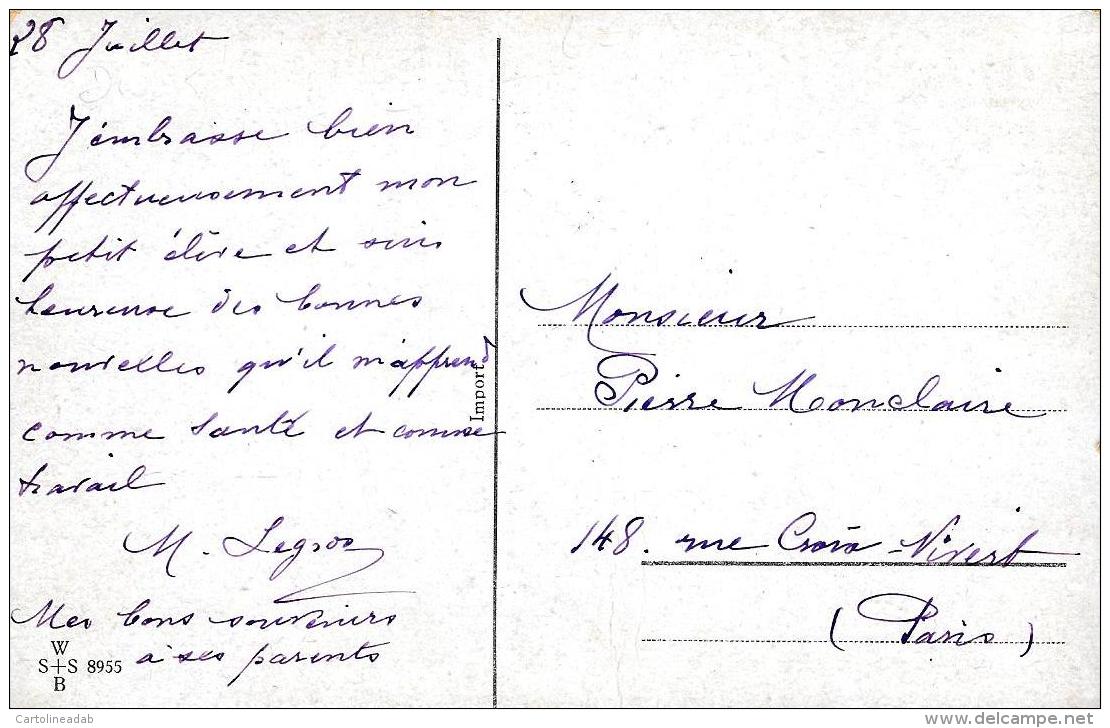 28 Juillet
J'embrasse bien
affectueusement mon
petit élève et suis
heureuse des bonnes
nouvelles qu'il m'apprend
comme santé et comme
travail
M. Legros
Mes bons souvenirs
à ses parents
W
S+S 8955
B
Import
Monsieur
Pierre Monclaire
148. rue Croix-Nivert
(Paris)
Cartolineadab
www.delcampe.net